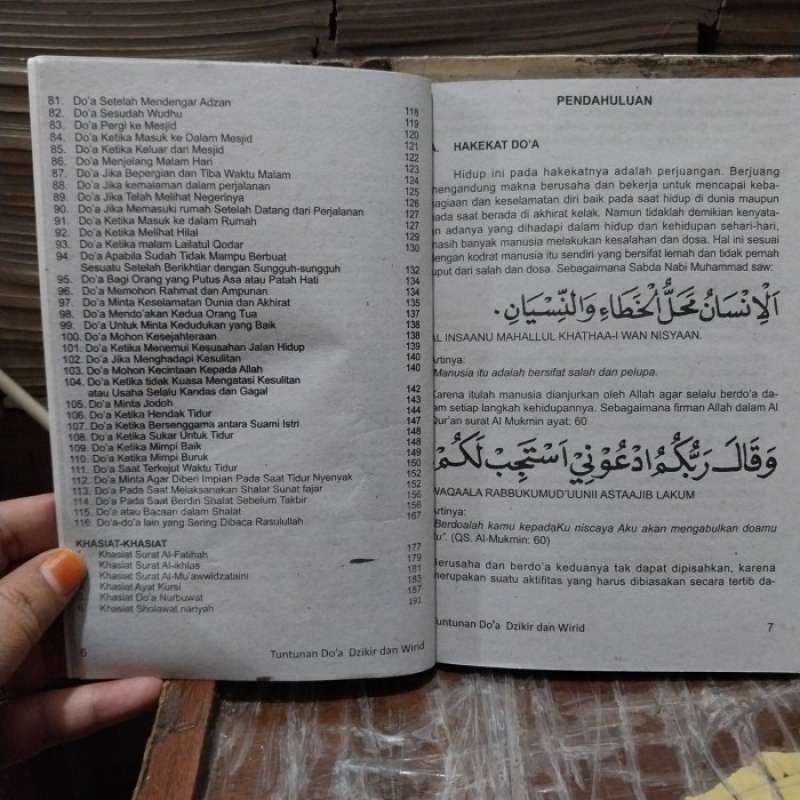 81. Do'a Setelah Mendengar Adzan 118
82. Do'a Sesudah Wudhu 119
83. Do'a Pergi ke Mesjid 120
84. Do'a Ketika Masuk ke Dalam Mesjid 121
85. Do'a Ketika Keluar dari Mesjid 122
86. Do'a Menjelang Malam Hari 123
87. Do'a Jika Bepergian dan Tiba Waktu Malam 124
88. Do'a Jika kemalaman dalam perjalanan 125
89. Do'a Jika Telah Melihat Negerinya 126
90. Do'a Jika Memasuki rumah Setelah Datang dari Perjalanan 127
91. Do'a Ketika Masuk ke dalam Rumah 127
92. Do'a Ketika Melihat Hilal 129
93. Do'a Ketika malam Lailatul Qodar 130
94. Do'a Apabila Sudah Tidak Mampu Berbuat
Sesuatu Setelah Berikhtiar dengan Sungguh-sungguh 132
95. Do'a Bagi Orang yang Putus Asa atau Patah Hati 134
96. Do'a Memohon Rahmat dan Ampunan 134
97. Do'a Minta Keselamatan Dunia dan Akhirat 135
98. Do'a Mendo'akan Kedua Orang Tua 137
99. Do'a Untuk Minta Kedudukan yang Baik 138
100. Do'a Mohon Kesejahteraan 138
101. Do'a Ketika Menemui Kesusahan Jalan Hidup 139
102. Do'a Jika Menghadapi Kesulitan 140
103. Do'a Mohon Kecintaan Kepada Allah 140
104. Do'a Ketika tidak Kuasa Mengatasi Kesulitan
atau Usaha Selalu Kandas dan Gagal 142
105. Do'a Minta Jodoh 143
106. Do'a Ketika Hendak Tidur 144
107. Do'a Ketika Bersenggama antara Suami Istri 147
108. Do'a Ketika Sukar Untuk Tidur 148
109. Do'a Ketika Mimpi Baik 148
110. Do'a Ketika Mimpi Buruk 149
111. Do'a Saat Terkejut Waktu Tidur 150
112. Do'a Minta Agar Diberi Impian Pada Saat Tidur Nyenyak 152
113. Do'a Pada Saat Melaksanakan Shalat Sunat fajar 152
114. Do'a Pada Saat Berdiri Shalat Sebelum Takbir 156
115. Do'a atau Bacaan dalam Shalat 156
116. Do'a-do'a lain yang Sering Dibaca Rasulullah 167
KHASIAT-KHASIAT
Khasiat Surat Al-Fatihah 177
Khasiat Surat Al-ikhlas 179
Khasiat Surat Al-Mu'awwidzataini 181
Khasiat Ayat Kursi 183
Khasiat Do'a Nurbuwat 187
Khasiat Sholawat nariyah 191
6 Tuntunan Do'a Dzikir dan Wirid
PENDAHULUAN
HAKEKAT DO'A
Hidup ini pada hakekatnya adalah perjuangan. Berjuang
mengandung makna berusaha dan bekerja untuk mencapai keba-
hagiaan dan keselamatan diri baik pada saat hidup di dunia maupun
pada saat berada di akhirat kelak. Namun tidaklah demikian kenyata-
an adanya yang dihadapi dalam hidup dan kehidupan sehari-hari,
masih banyak manusia melakukan kesalahan dan dosa. Hal ini sesuai
dengan kodrat manusia itu sendiri yang bersifat lemah dan tidak pernah
luput dari salah dan dosa. Sebagaimana Sabda Nabi Muhammad saw:
اَلْاِنْسَانُ مَحَلُّ الْخَطَاءِ وَالنِّسْيَانِ.
AL INSAANU MAHALLUL KHATHAA-I WAN NISYAAN.
Artinya:
Manusia itu adalah bersifat salah dan pelupa.
Karena itulah manusia dianjurkan oleh Allah agar selalu berdo'a da-
lam setiap langkah kehidupannya. Sebagaimana firman Allah dalam Al
Qur'an surat Al Mukmin ayat: 60
وَقَالَ رَبُّكُمُ ادْعُوْنِيْ اَسْتَجِبْ لَكُمْ
WAQAALA RABBUKUMUD'UUNII ASTAAJIB LAKUM
Artinya:
"Berdoalah kamu kepadaKu niscaya Aku akan mengabulkan doamu
itu". (QS. Al-Mukmin: 60)
Berusaha dan berdo'a keduanya tak dapat dipisahkan, karena
merupakan suatu aktifitas yang harus dibiasakan secara tertib da-
Tuntunan Do'a Dzikir dan Wirid 7